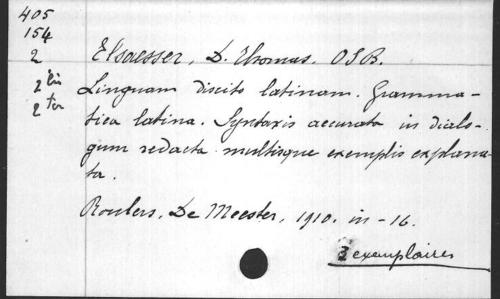 405
154
2
2 bis
2 ter
Elsaesser, D. Thomas. OSB.
Linguam discito latinam. Gramma-
tica latina. Syntaxis accurata in dialo-
gum redacta multisque exemplis explana-
ta.
Roulers, De Meester, 1910. in-16.
3 exemplaires